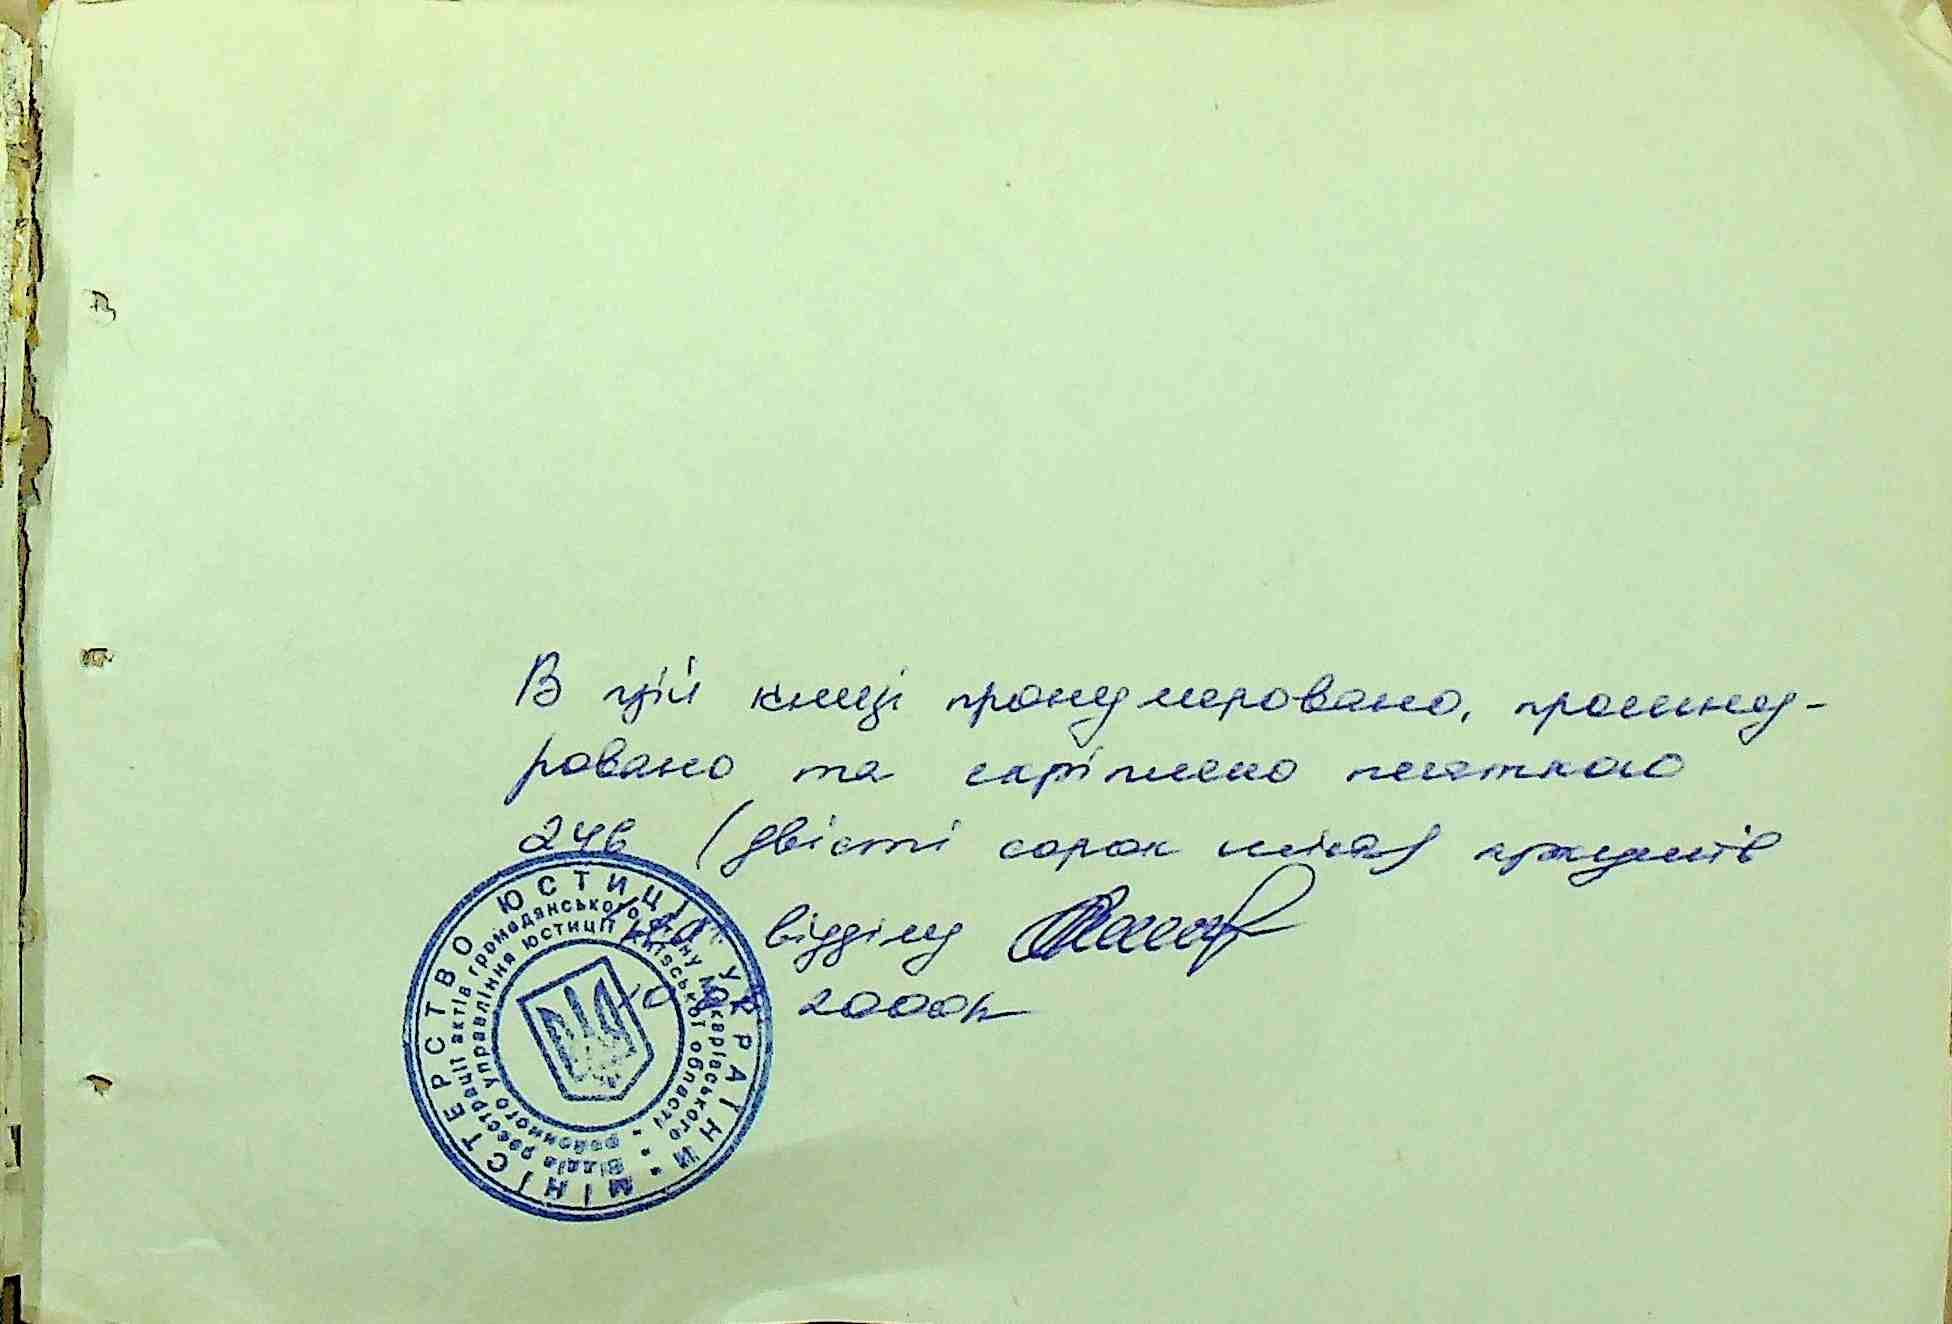 В цій книзі пронумеровано, прошну-
ровано та скріплено печаткою
246 (двісті сорок шість) аркушів
відділу
2000р
МІНІСТЕРСТВО ЮСТИЦІЇ УКРАЇНИ
Відділ реєстрації актів громадянського стану Макарівського
районного управління юстиції Київської області